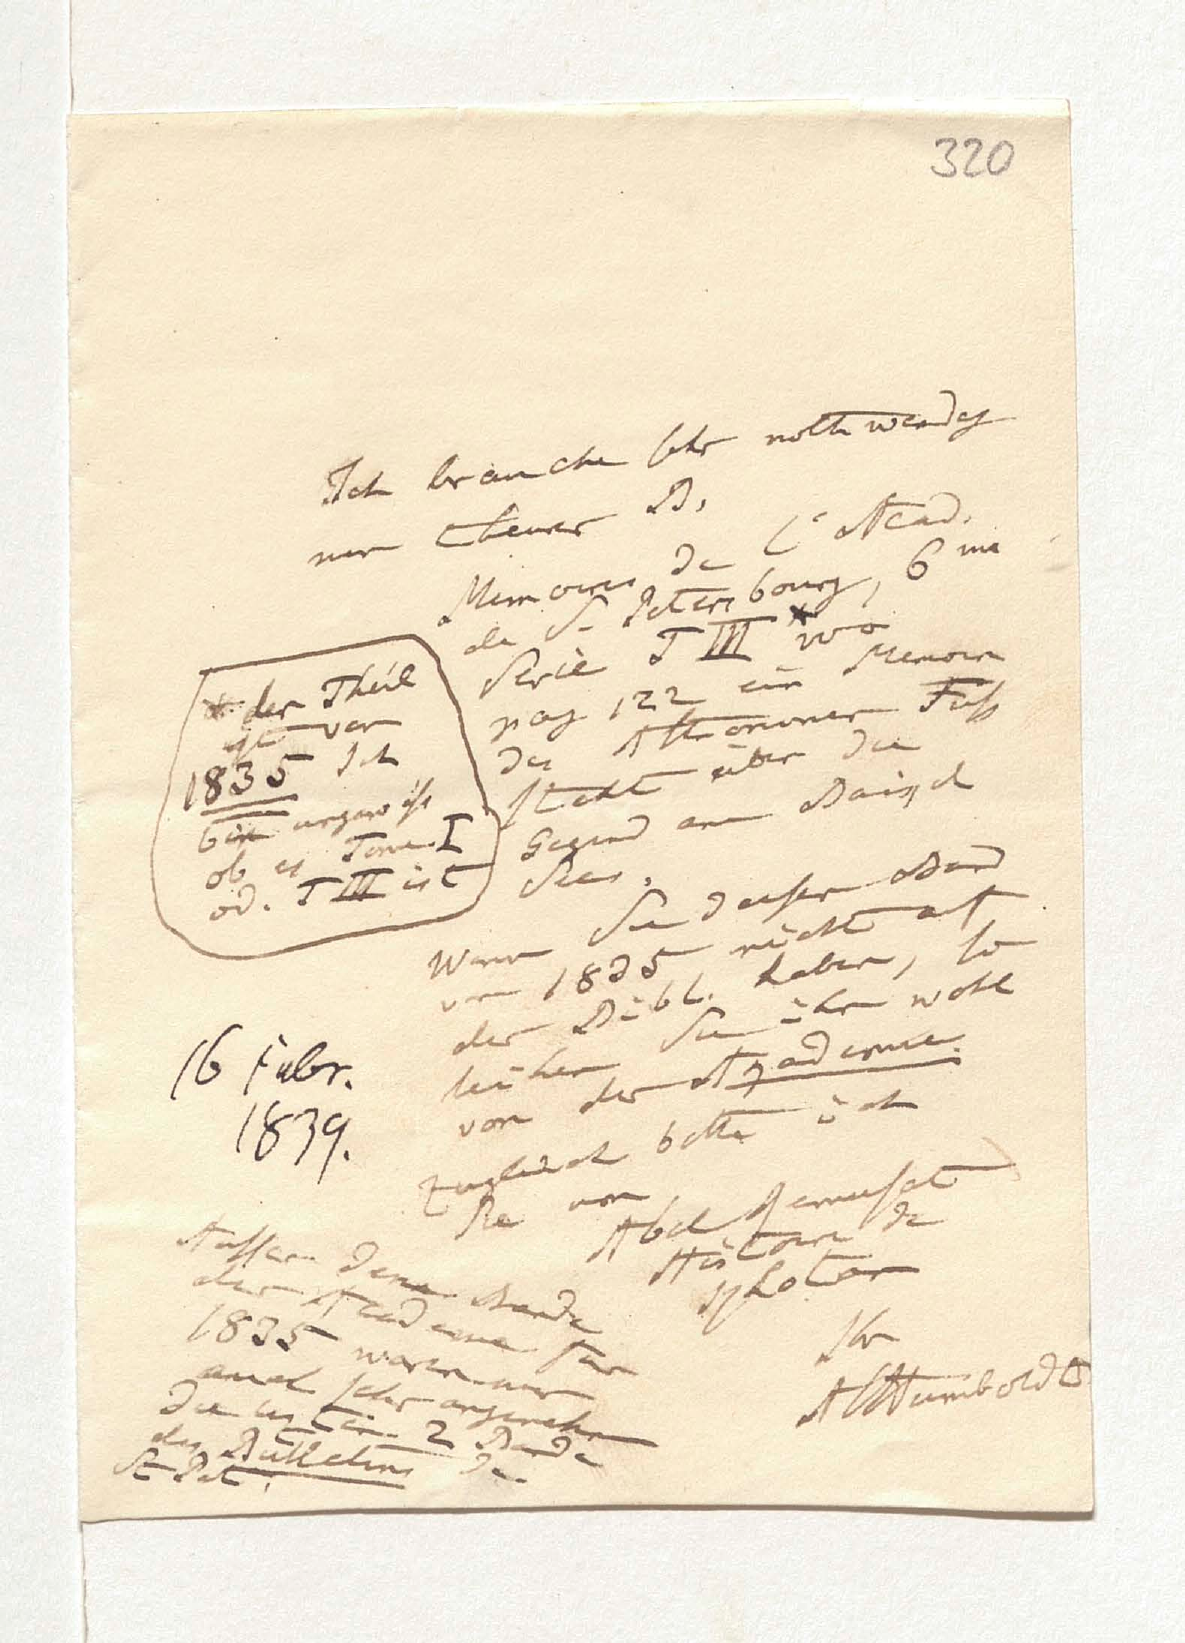 320
Ich brauche sehr nothwendig
mein theurer B.
Memoires de l'Acad.
de St. Petersbourg, 6me
Serie T III * wo
pag 122 ein Memoir
des Astronomen Fuss
steht über die
Gegend am Baikal
See.
* der Theil
ist von
1835 Ich
bin ungewiss
ob es Tome I
od. T III ist
Wenn Sie diesen Band
von 1835 nicht auf
der Bibl. haben, so
leihen Sie ihn wohl
von der Academie.
Zugleich bitte ich
Sie um
Abel Remusat
Histoire de
Khotan
Ihr
AlHumboldt
16 Febr.
1839.
Ausser dem Bande
der Academie für
1835 wären mir
auch sehr angenehm
die ersten 2 Bände
des Bulletins de
St Pet.